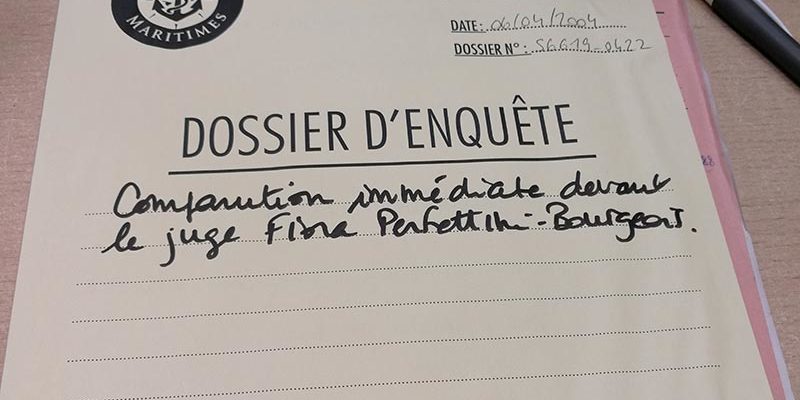 MARITIMES
DATE: 06/04/2004
DOSSIER N°: SGG19-0422
DOSSIER D'ENQUÊTE
Comparution immédiate devant
le juge Fiora Perfettini-Bourgeois.
88